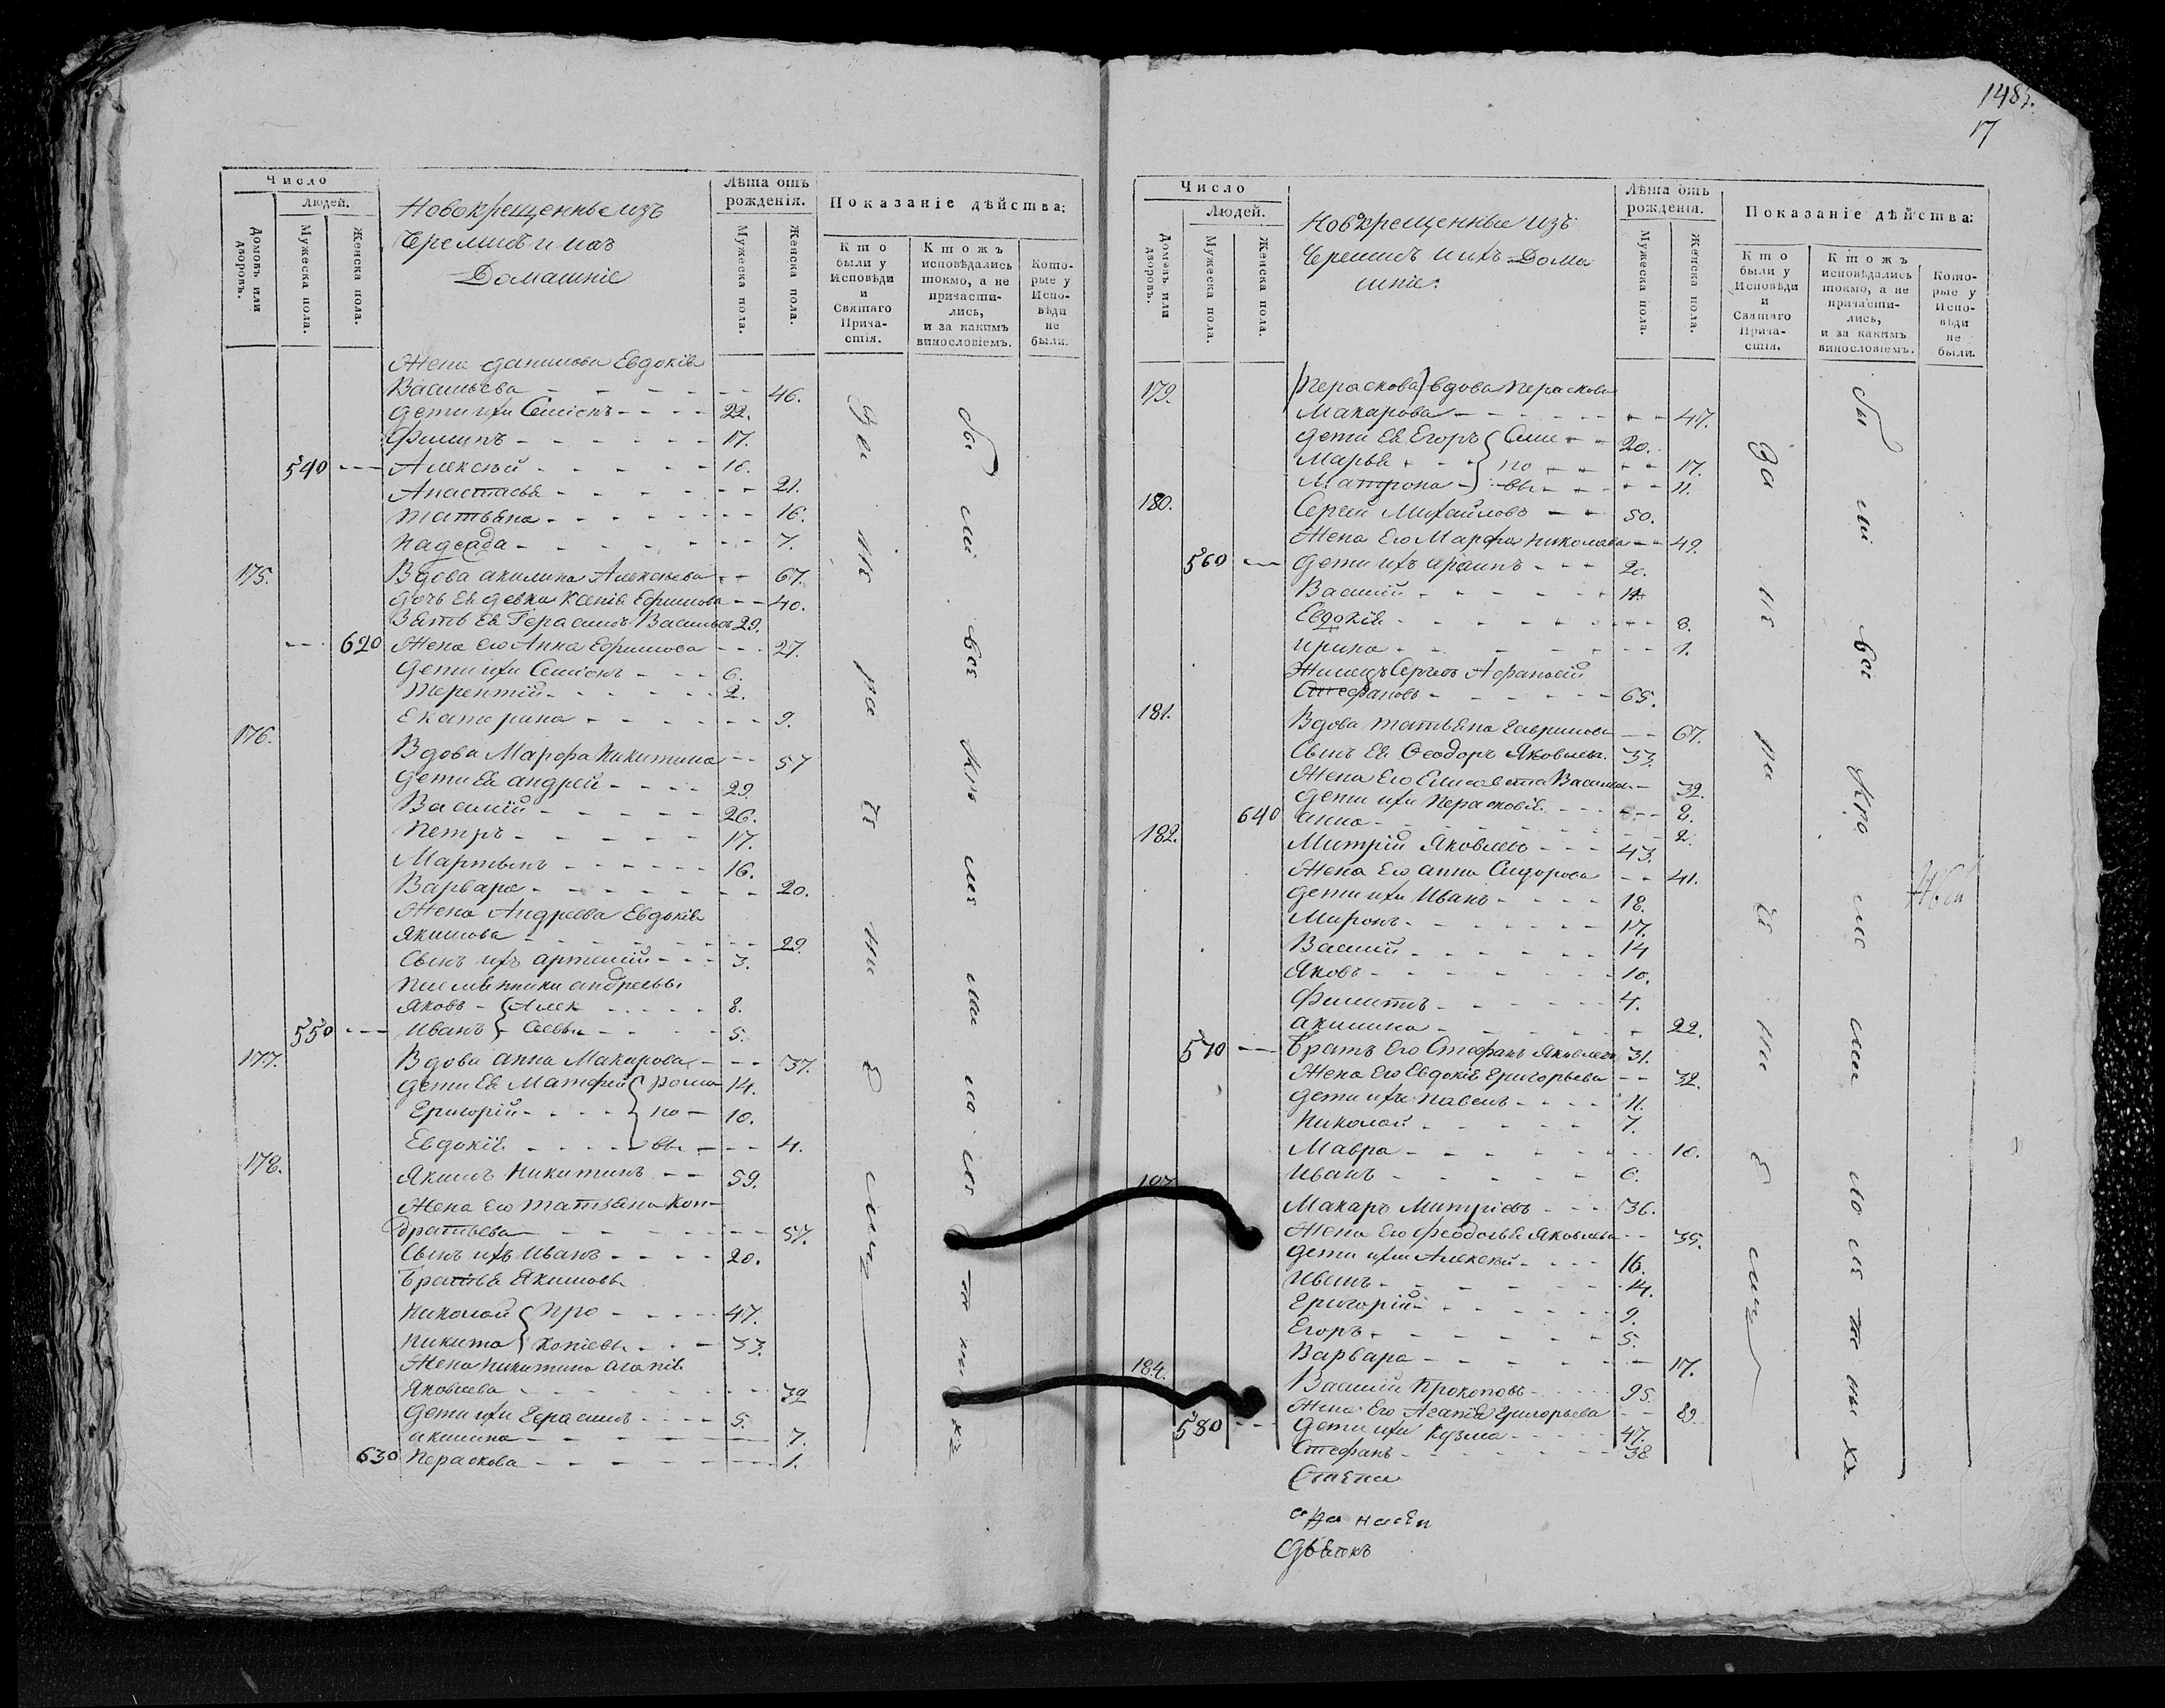 Число
Людей.
Домовъ или дворовъ.
Мужеска пола.
Женска пола.
Новокрещенные изъ
Черемисъ и ихъ
Домашнїе
Лѣта отъ рожденїя.
Мужеска пола.
Женска пола.
Показанїе дѣйства:
Кто были у Исповѣди и Святаго Прича-стїя.
Ктожъ исповѣдались токмо, а не причасти-лись, и за какимъ винословїемъ.
Кото-рые у Испо-вѣди не были.
Жена Данилова Евдокїя
Васильева - - - 46.
Дети ихъ Семіонъ - - - 22.
Филипъ - - - 17.
540 - - - Алексѣй - - - 10.
Анастасья - - - 21.
Татьяна - - - 16.
Надежда - - - 7.
175. Вдова Акилина Алексѣева - - 67.
Дочь Ея девка Ксенія Ефимова - - 40.
Зять Ея Герасимъ Васильевъ 29.
620 Жена его Анна Ефимова - - - 27.
Дети ихъ Семіонъ - - - 6.
Терентій - - - 2.
Екатерина - - - 9.
176.
Вдова Марфа Никитина - - 57
Дети Ея Андрей - - - 29.
Василій - - - 26.
Петръ - - - 17.
Мартынъ - - - 16.
Варвара - - - 20.
Жена Андреева Евдокія
Якимова - - - 29.
Сынъ ихъ Артемій - - - 3.
Племянники Андреевы
Яковъ - { Алек - - - 8.
550 - - - Иванъ { сеевы - - - 5.
177. Вдова Анна Макарова - - - 37.
Дети Ея Матфей { Рома 14.
Григорій - - - { но - 10.
Евдокія - - - вы - - - 4.
178.
Якимъ Никитинъ - - 59.
Жена Его Татьяна Кон-
дратьева - - - 57.
Сынъ ихъ Иванъ - - - 20.
Братья Якимовы
Николай { Про - - - 47.
Никита { копіевы - - - 33.
Жена Никитина Агапія
Яковлева - - - 32
Дети ихъ Герасимъ - - - 5.
Акилина - - - 7.
630 Пераскова - - - 1.
1483.
17
Число
Людей.
Домовъ или дворовъ.
Мужеска пола
Женска пола.
Новокрещенные изъ
Черемисъ и ихъ Дома
шніе.
Лѣта отъ рожденїя.
Мужеска пола.
Женска пола.
Показанїе дѣйства:
Кто были у Исповѣди и Святаго Прича-стїя.
Ктожъ исповѣдались токмо, а не причасти-лись, и за какимъ винословїемъ.
Кото-рые у Испо-вѣди не были.
179. (Пераскова) Вдова Пераскова
Макарова - - - 47.
Дети Ея Егоръ { Симе - - 20.
Марья - - - { но - - - 17.
Матрона - } вы - - - 11.
180. Сергій Михайловъ - - 50.
Жена Его Марфа Николаева - - 49.
560 - - Дети ихъ - - - 20.
Василій - - - 14.
Евдокія - - - 8.
Ирина - - - 1.
Афанасій
Стефановъ - - - 65.
181.
Вдова Татьяна Гаврилова - - 67.
Сынъ Ея Ѳеодоръ Яковлевъ. 33.
Жена Его Елисавета Васильева - 32.
Дети ихъ Перасковія - - - 8.
640 Анна - - - 2.
182. Митрій Яковлевъ - - - 43.
Жена Его Анна Сидорова - - 41.
Дети ихъ Иванъ - - - 18.
Миронъ - - - 17.
Василій - - - 14
Яковъ - - - 10.
Филипъ - - - 4.
Акилина - - - 22.
570 - - Братъ Его Стефанъ Яковлевъ 31.
Жена Его Евдокія Григорьева - - 32.
Дети ихъ Павелъ - - - 11.
Николай - - - 7.
Мавра - - - 10.
Иванъ - - - 6.
Макаръ Митріевъ - - - 36.
Жена Его Феодосья Яковлева - - 35.
Дети ихъ Алексѣй - - - 16.
Иванъ - - - 14.
Григорій - - - 9.
Егоръ - - - 5.
Варвара - - - 17.
184. Василій Прокоповъ - - - 95.
Жена Его Агапія Григорьева - - 89.
580 - - Дети ихъ Кузма - - - 47.
Стефанъ - - - 38